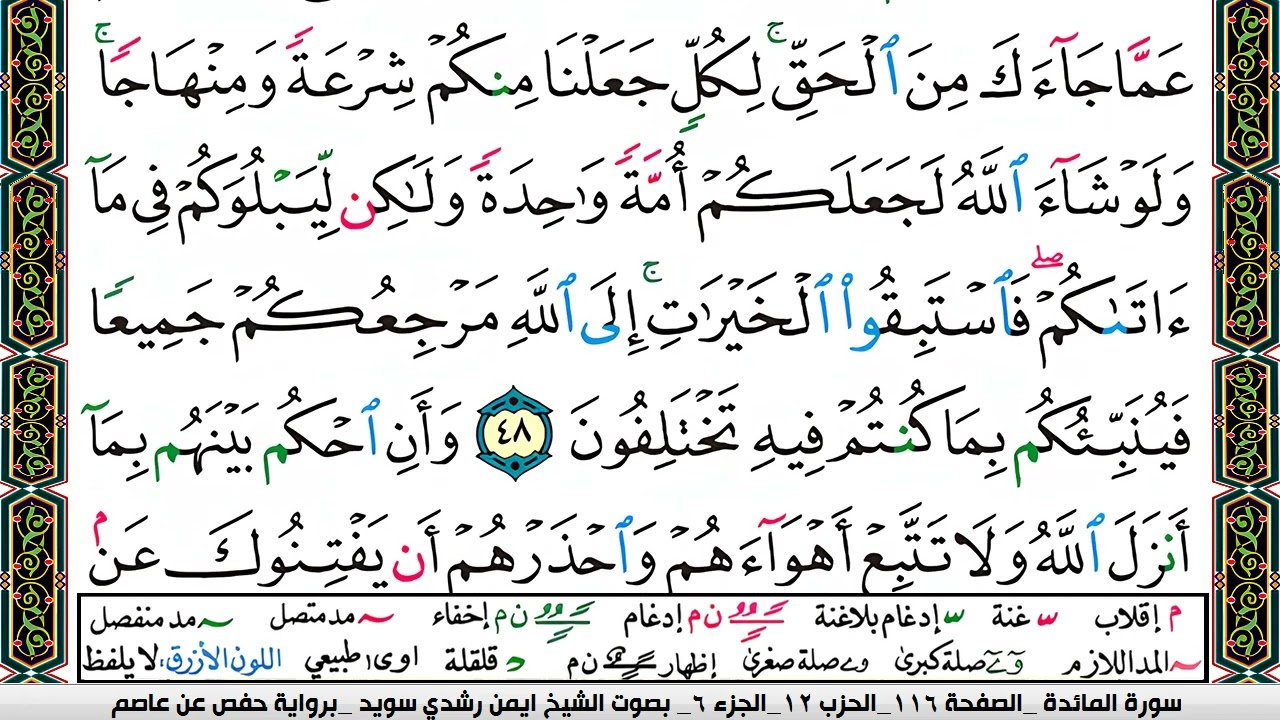 عَمَّا جَآءَكَ مِنَ ٱلْحَقِّ ۚ لِكُلٍّ جَعَلْنَا مِنكُمْ شِرْعَةً وَمِنْهَاجًا ۚ
وَلَوْ شَآءَ ٱللَّهُ لَجَعَلَكُمْ أُمَّةً وَٰحِدَةً وَلَٰكِن لِّيَبْلُوَكُمْ فِى مَآ
ءَاتَىٰكُمْ ۖ فَٱسْتَبِقُوا۟ ٱلْخَيْرَٰتِ ۚ إِلَى ٱللَّهِ مَرْجِعُكُمْ جَمِيعًا
فَيُنَبِّئُكُم بِمَا كُنتُمْ فِيهِ تَخْتَلِفُونَ ٤٨ وَأَنِ ٱحْكُم بَيْنَهُم بِمَآ
أَنزَلَ ٱللَّهُ وَلَا تَتَّبِعْ أَهْوَآءَهُمْ وَٱحْذَرْهُمْ أَن يَفْتِنُوكَ عَنۢ
م إقلاب غنة إدغام بلاغنة ن م إدغام ن م إخفاء مد متصل مد منفصل
المد اللازم صلة كبرى صلة صغرى إظهار ن م قلقلة اوى طبيعي اللون الأزرق، لا يلفظ
سورة المائدة _الصفحة ١١٦_الحزب ١٢_الجزء ٦_ بصوت الشيخ ايمن رشدي سويد _برواية حفص عن عاصم